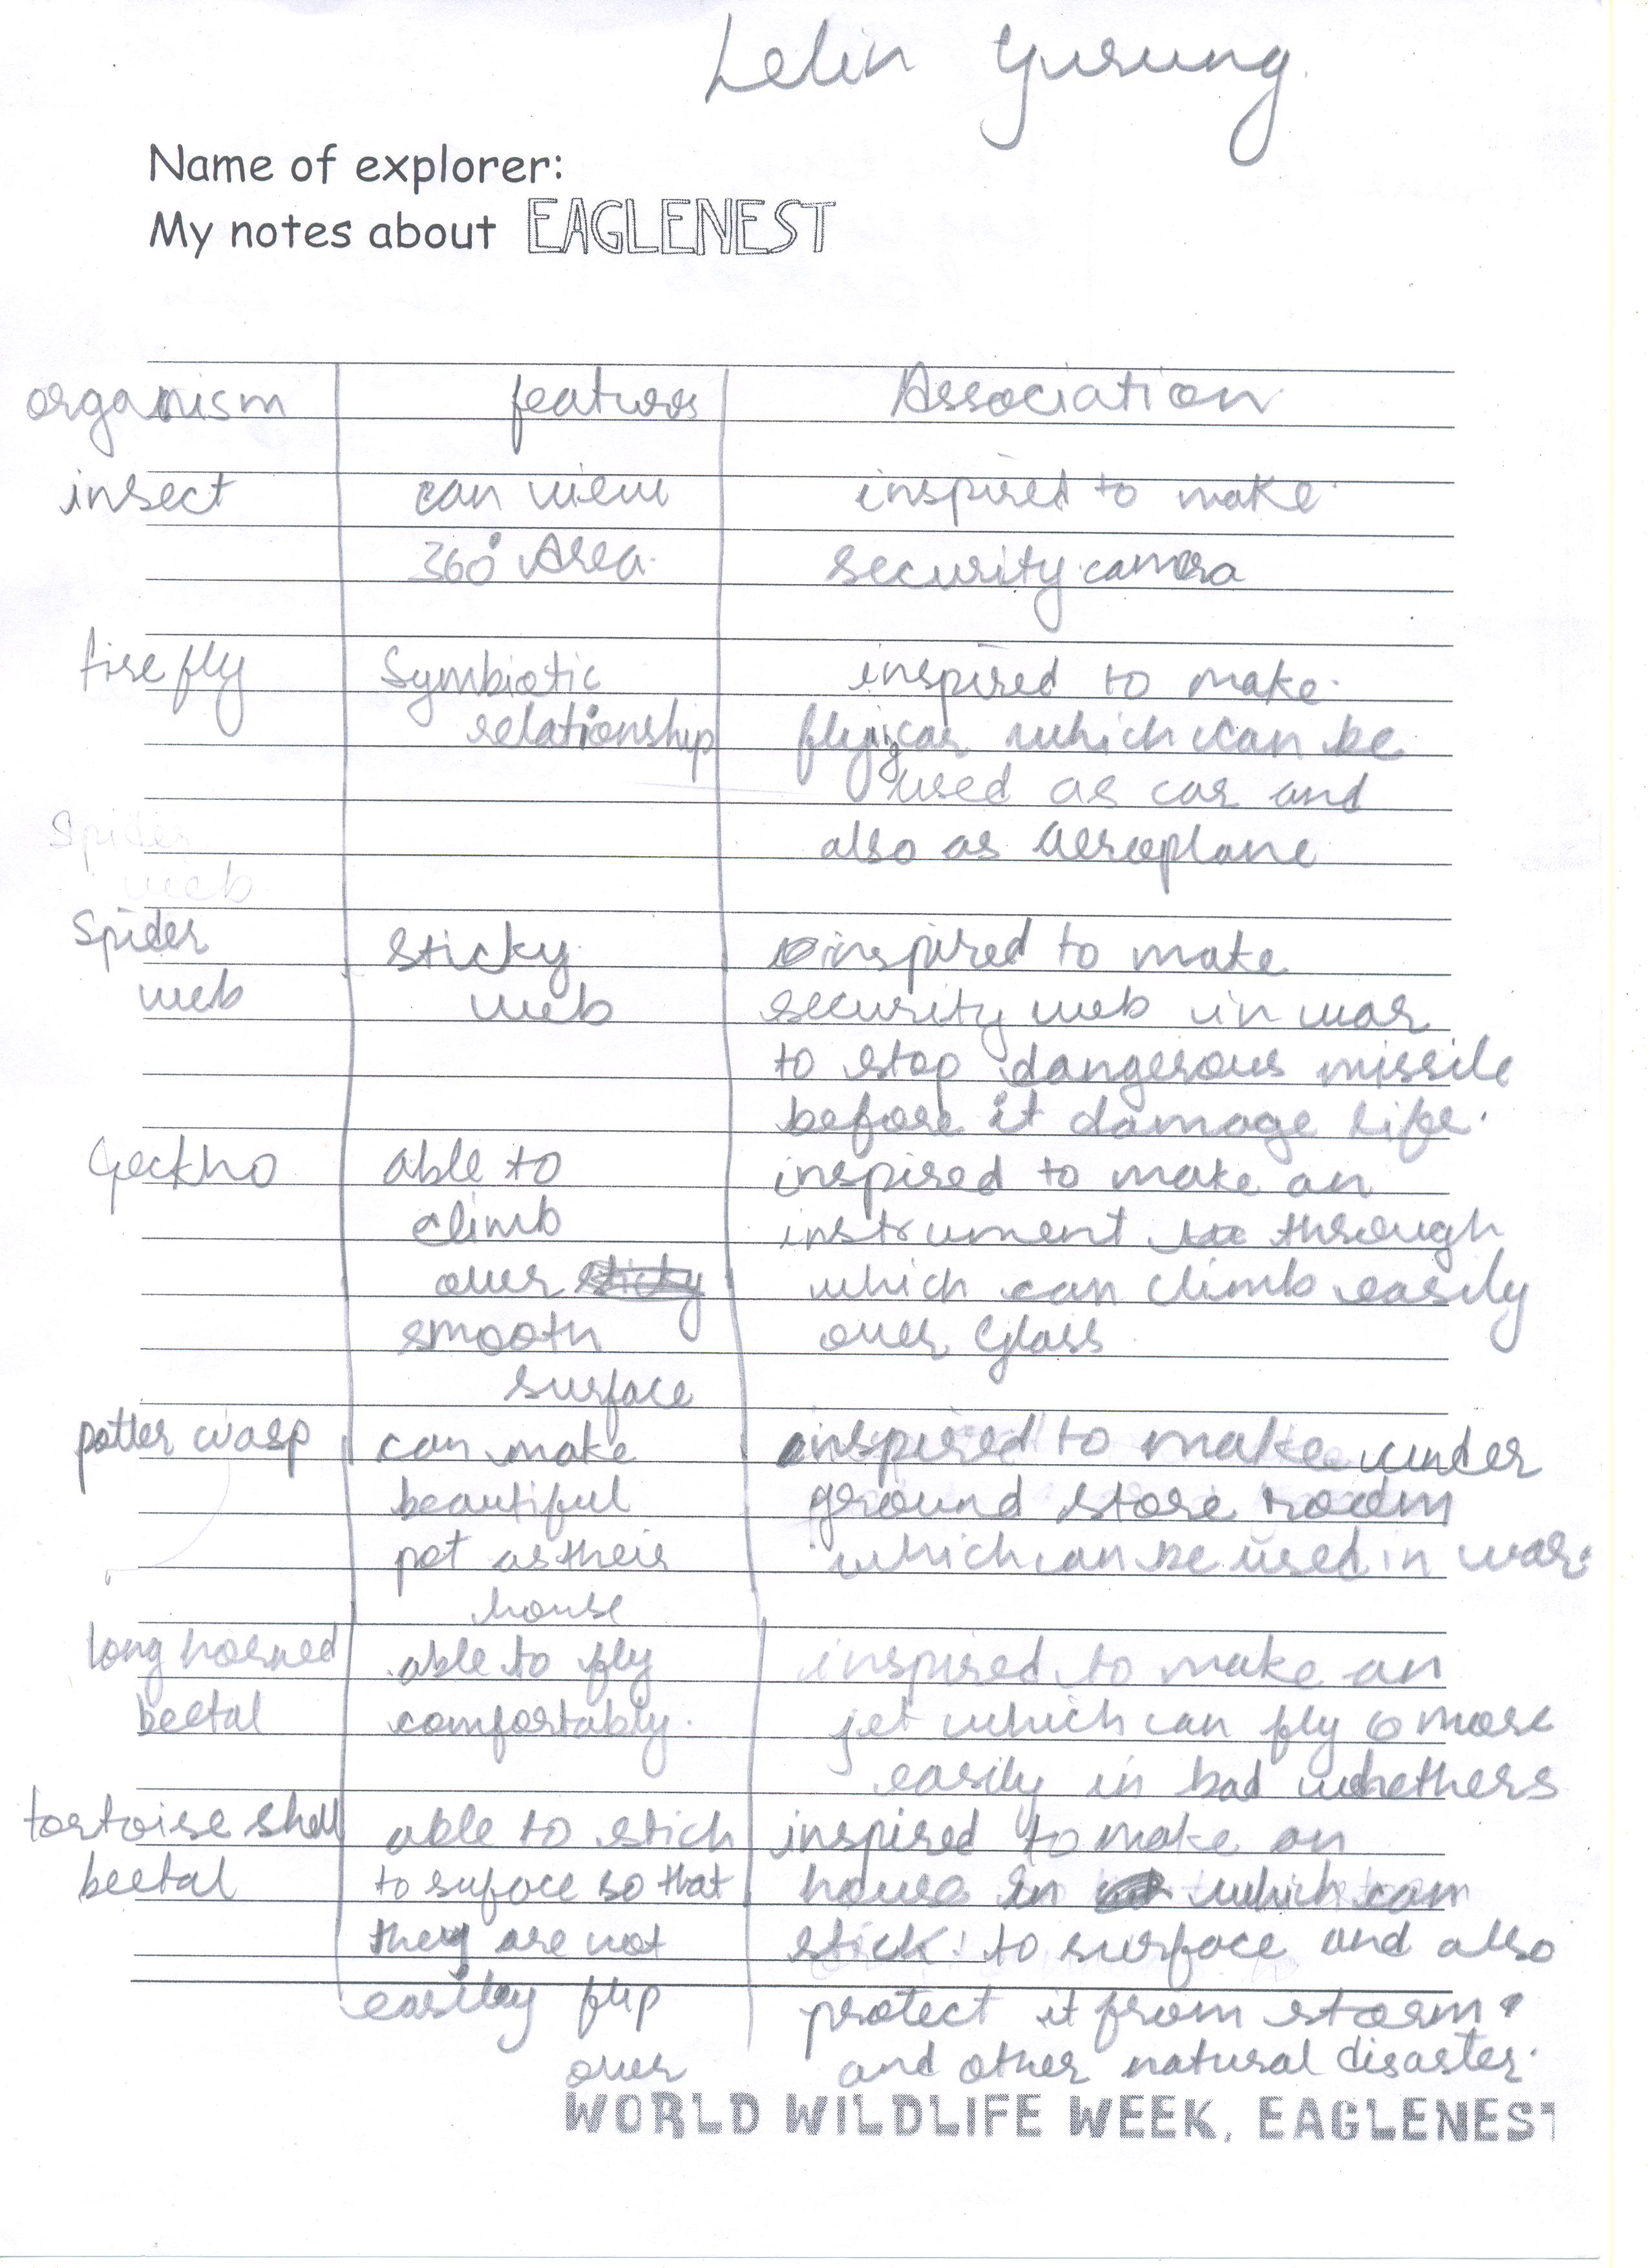 Lelin Gurung
Name of explorer:
My notes about EAGLENEST
organism features Association
insect can view inspired to make
360° Area. security camera
firefly Symbiotic inspired to make
relationship flying car which can be
used as car and
Spider also as aeroplane
web
Spider sticky inspired to make
web web security web in war
to stop dangerous missile
before it damage life.
Geckho able to inspired to make an
climb instrument through
over sticky which can climb easily
smooth over Glass
surface
potter wasp can make inspired to make under
beautiful ground store room
pot as their which can be used in war.
house
long horned able to fly inspired to make an
beetal comfortably. jet which can fly more
easily in bad whethers
tortoise shell able to stich inspired to make an
beetal to suface so that house in which can
they are not stick to surface and also
easiley flip protect it from storm
over and other natural disaster.
WORLD WILDLIFE WEEK, EAGLENEST